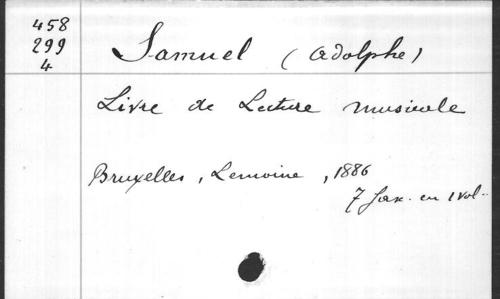 458
299
4
Samuel (Adolphe)
Livre de Lecture musicale
Bruxelles, Lemoine, 1886
7 fax. en 1 vol.